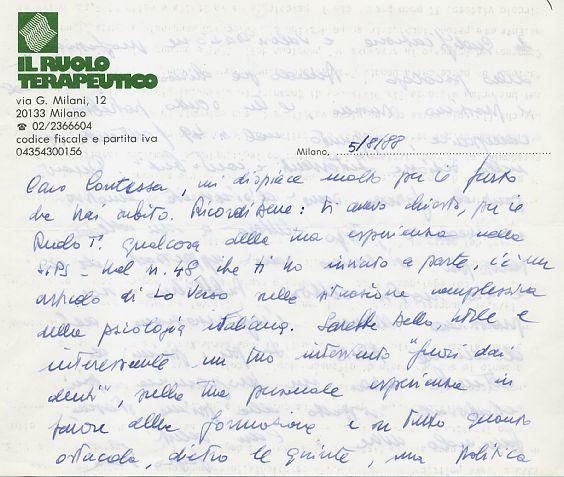 IL RUOLO
TERAPEUTICO
via G. Milani, 12
20133 Milano
☎ 02/2366604
codice fiscale e partita iva
04354300156
Milano, 5/8/88
Caro Contessa, mi dispiace molto per il furto
che hai subito. Ricordi bene: ti avevo chiesto, per il
Ruolo T. qualcosa della tua esperienza nella
SIPS - Nel n. 48 che ti ho inviato a parte, c'è un
articolo di Lo Verso sulla situazione complessiva
della psicologia italiana. Sarebbe bello, utile e
interessante un tuo intervento "fuori dai
denti", sulla tua personale esperienza in
favore della formazione e su tutto quanto
ostacola, dietro le quinte, una politica